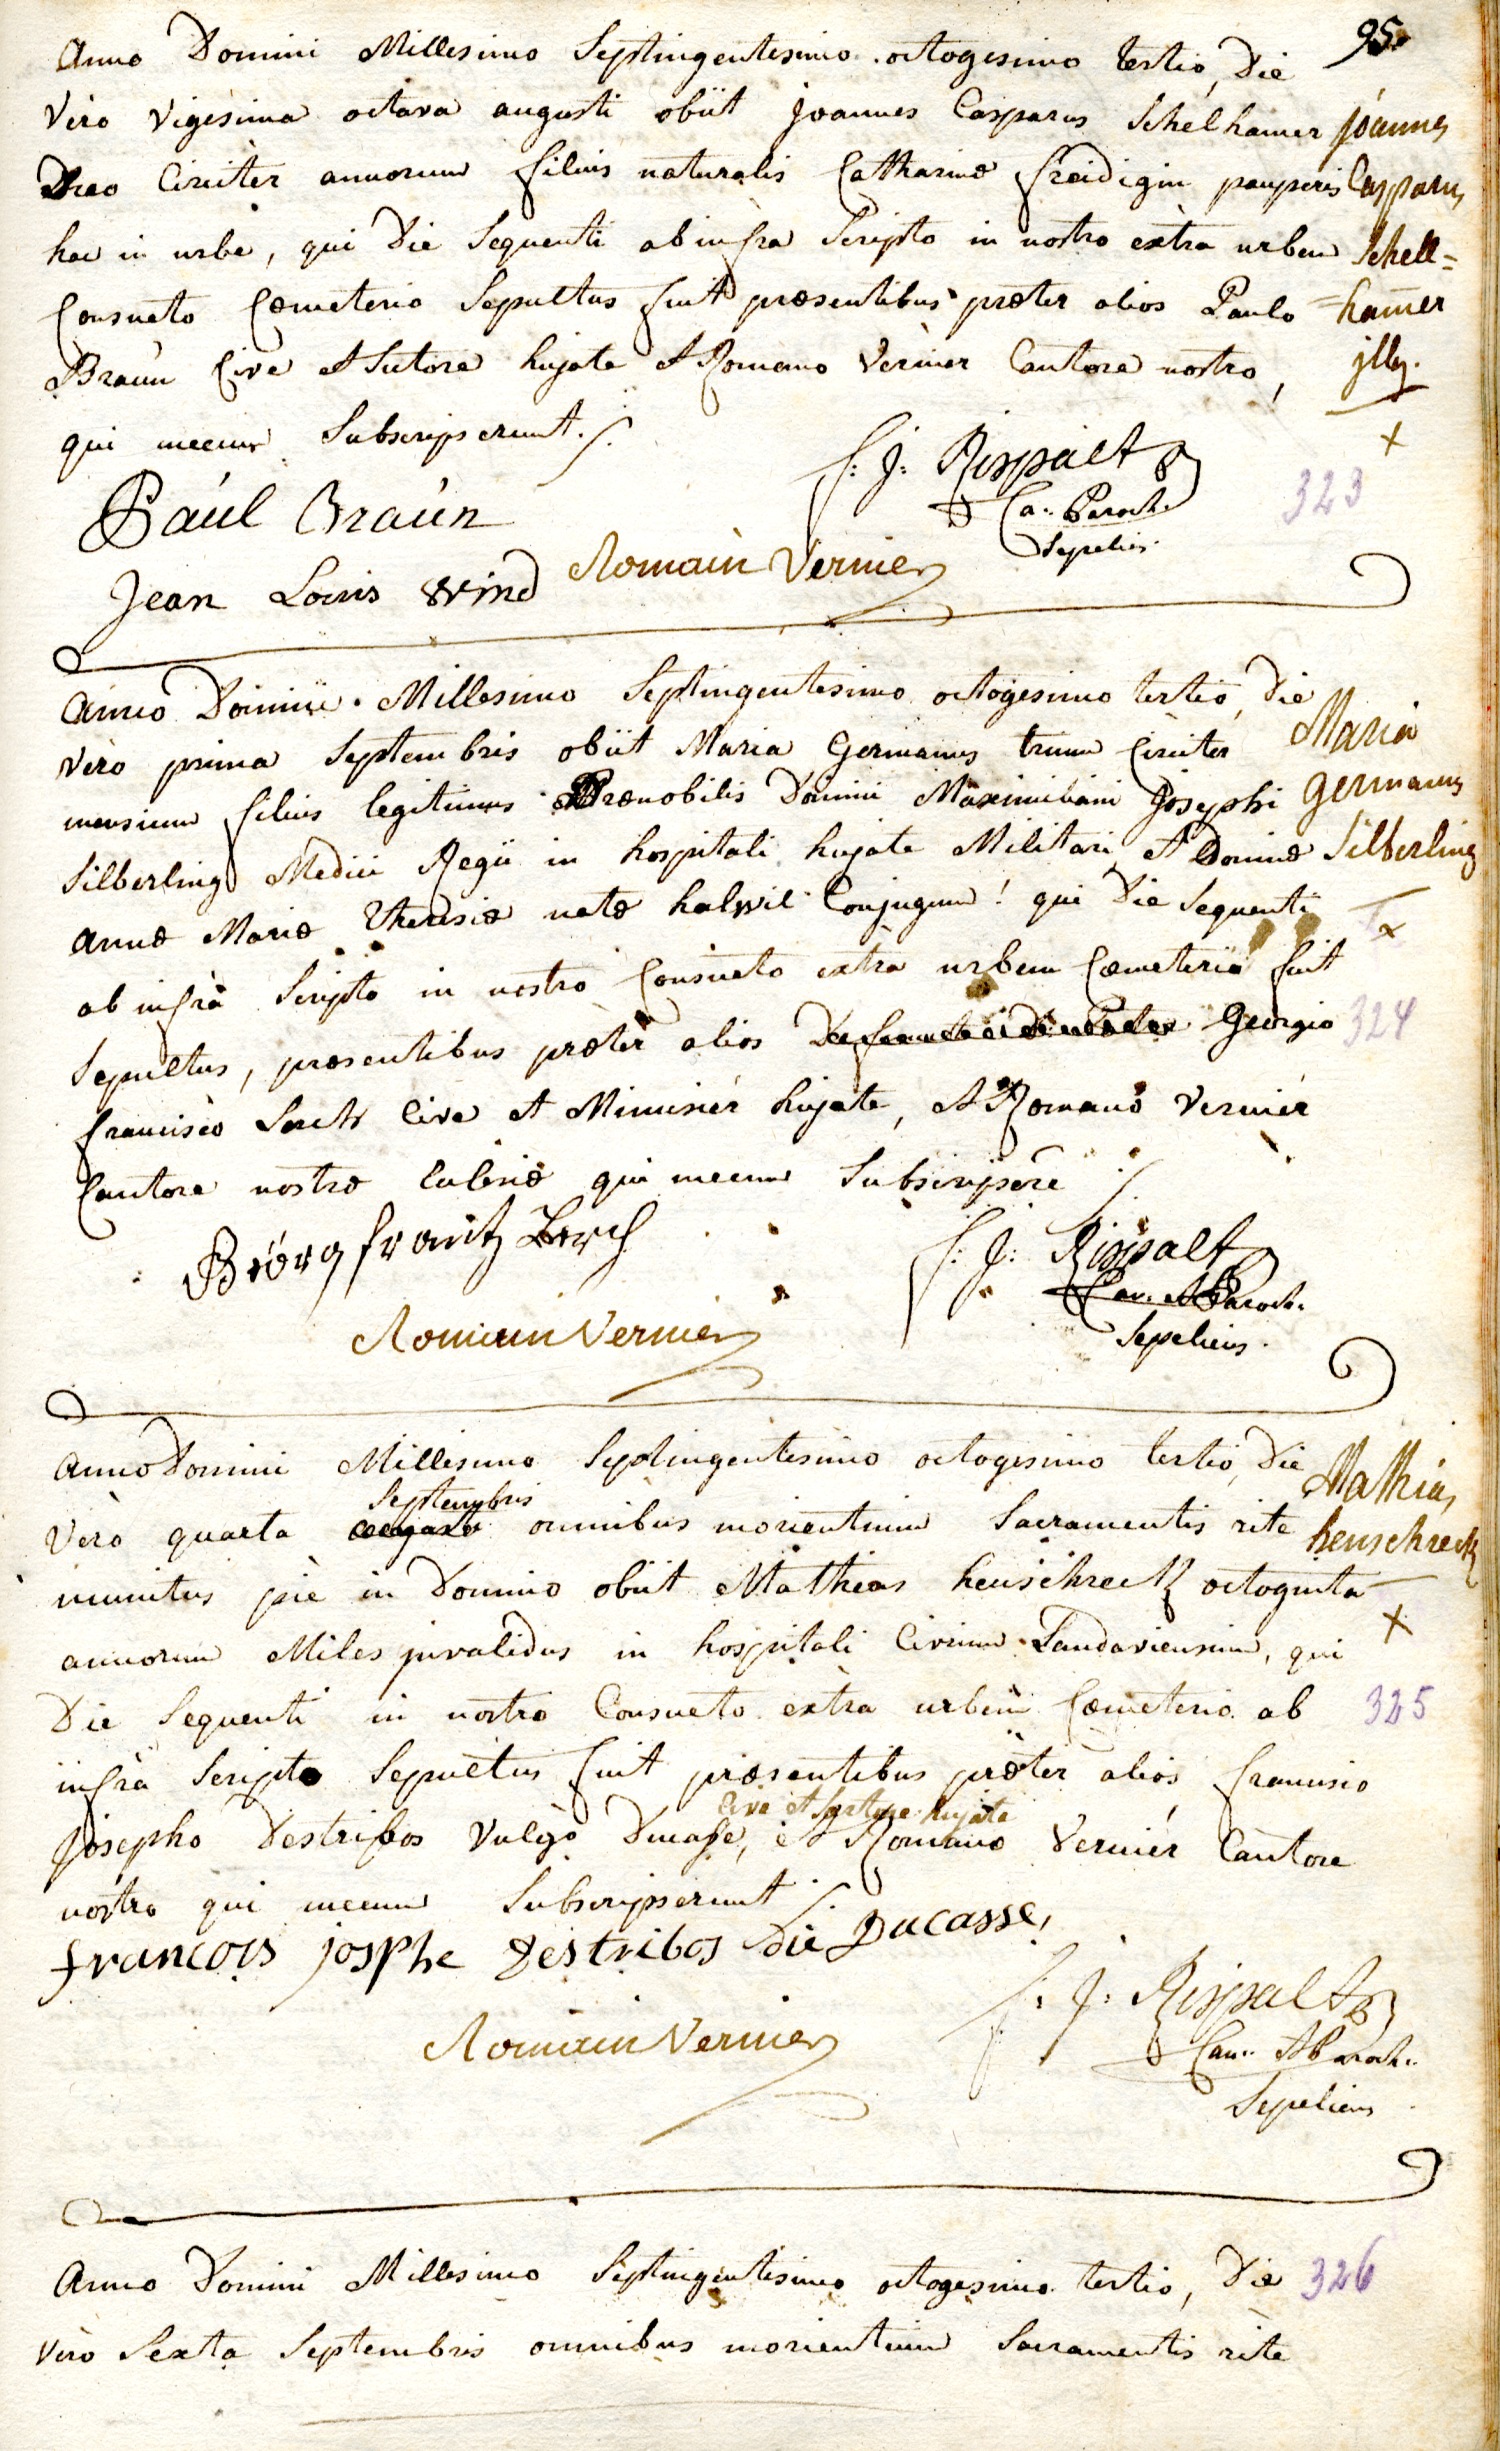 95.
Anno Domini Millesimo Septingentesimo octogesimo tertio, Die
Verò Vigesima octava augusti obiit Joannes Casparus Schelhamer
circiter annorum filius naturalis Catharinæ pauperis
hac in urbe, qui Die Sequenti ab infra Scripto in nostro extra urbem
Consueto Cœmeterio Sepultus fuit præsentibus præter alios Paulo
Braun Cive et Sutore hujate et Romano Vernier Cantore nostro,
qui mecum Subscripserunt ./.
Joannes
Casparus
Schell=
=hamer
illeg.
×
323
Paul Braun
F: J: Rispalt
Can: Paroch.
Sepeliens.
Romain Vernier
Jean Louis Wind
Anno Domini Millesimo Septingentesimo octogesimo tertio, Die
Verò prima Septembris obiit Maria Germanus trium Circiter
mensium filius legitimus Prænobilis Domini Maximiliani Josephi
Silberling Medici Regii in hospitali hujate Militari et Dominæ
annæ Mariæ Theresiæ natæ halwil Conjugum! qui Die Sequenti
ab infrà Scripto in nostro Consueto extra urbem Cœmeterio fuit
Sepultus, præsentibus præter alios Georgio
francisco Cive et hujate, et Romano Vernier
Cantore nostro qui mecum Subscripsere ./.
Maria
Germanus
Silberling
×
324
frantz
F: J: Rispalt
Can: et Paroch.
Sepeliens.
Romain Vernier
Anno Domini Millesimo Septingentesimo octogesimo tertio, Die
Septembris
Verò quarta omnibus morientium Sacramentis rite
munitus piè in Domino obiit Mathias heuschreck octoginta
annorum Miles invalidus in hospitali Civium Landaviensium, qui
Die Sequenti in nostro Consueto extra urbem Cœmeterio ab
infrà Scripto Sepultus fuit præsentibus præter alios francisco
Cive et Sartore hujate
Josepho Destribos Vulgò Ducasse, et Romano Vernier Cantore
nostro qui mecum Subscripserunt ./.
Mathias
heuschreck
×
325
francois josphe Destribos die Ducasse,
F: J: Rispalt
Can: et Paroch.
Sepeliens
Romain Vernier
Anno Domini Millesimo Septingentesimo octogesimo tertio, Die
326
Verò Sexta Septembris omnibus morientium Sacramentis rite